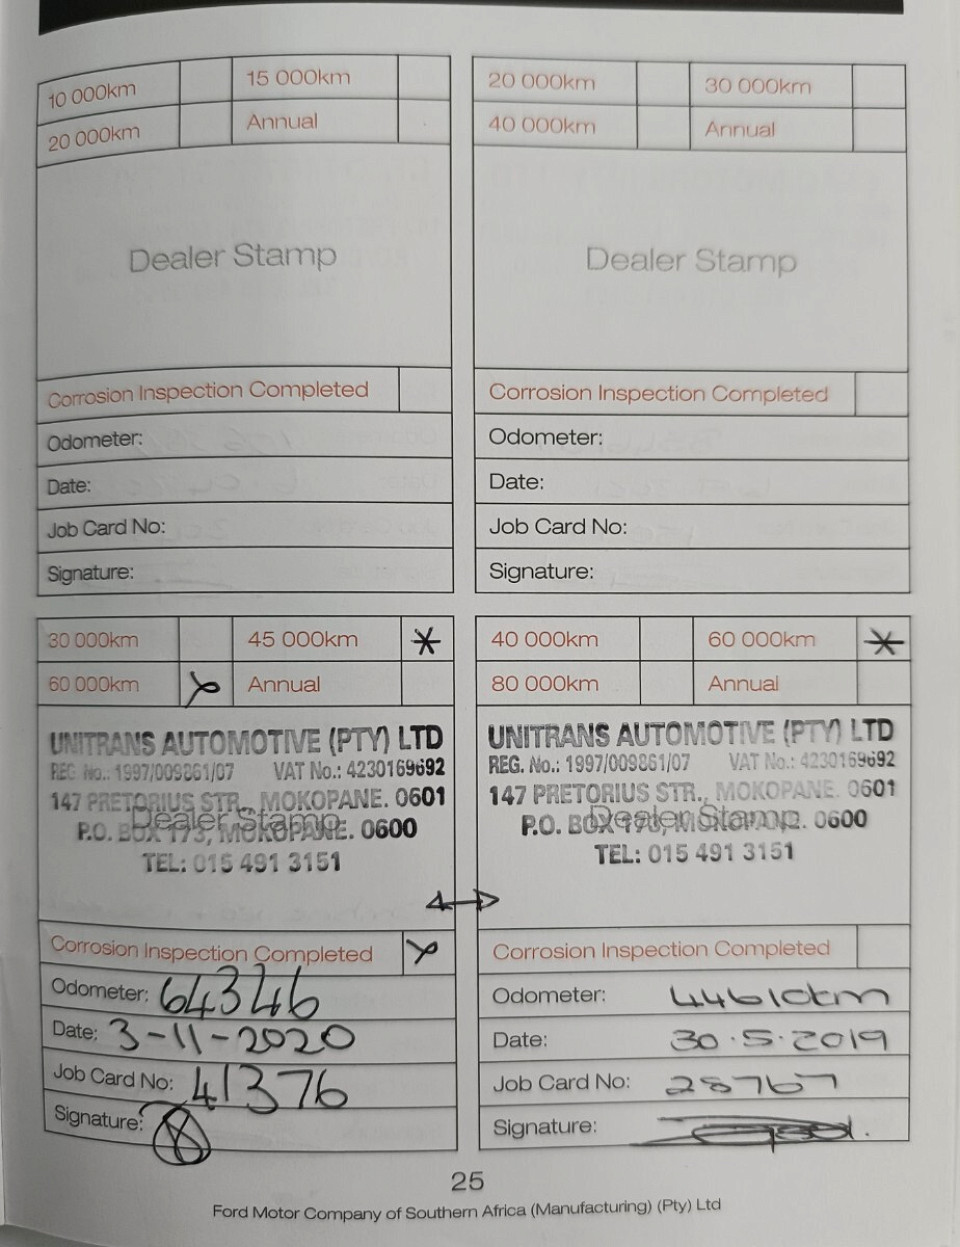 10 000km 15 000km
20 000km Annual
Dealer Stamp
Corrosion Inspection Completed
Odometer:
Date:
Job Card No:
Signature:
20 000km 30 000km
40 000km Annual
Dealer Stamp
Corrosion Inspection Completed
Odometer:
Date:
Job Card No:
Signature:
30 000km 45 000km
60 000km Annual
UNITRANS AUTOMOTIVE (PTY) LTD
REG No.: 1997/009861/07 VAT No.: 4230169692
147 PRETORIUS STR., MOKOPANE. 0601
Dealer Stamp
P.O. BOX 173, MOKOPANE. 0600
TEL: 015 491 3151
Corrosion Inspection Completed
Odometer: 64346
Date: 3-11-2020
Job Card No: 41376
Signature:
40 000km 60 000km
80 000km Annual
UNITRANS AUTOMOTIVE (PTY) LTD
REG. No.: 1997/009861/07 VAT No.: 4230169692
147 PRETORIUS STR., MOKOPANE. 0601
Dealer Stamp
P.O. BOX MOKOPANE. 0600
TEL: 015 491 3151
Corrosion Inspection Completed
Odometer: 44610km
Date: 30.5.2019
Job Card No: 28767
Signature:
25
Ford Motor Company of Southern Africa (Manufacturing) (Pty) Ltd